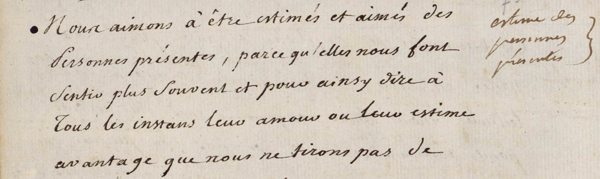 • Nous aimons à être estimés et aimés des
personnes présentes, parce qu'elles nous font
sentir plus souvent et pour ainsy dire à
tous les instans leur amour ou leur estime
avantage que nous ne tirons pas de
estime des
personnes
présentes